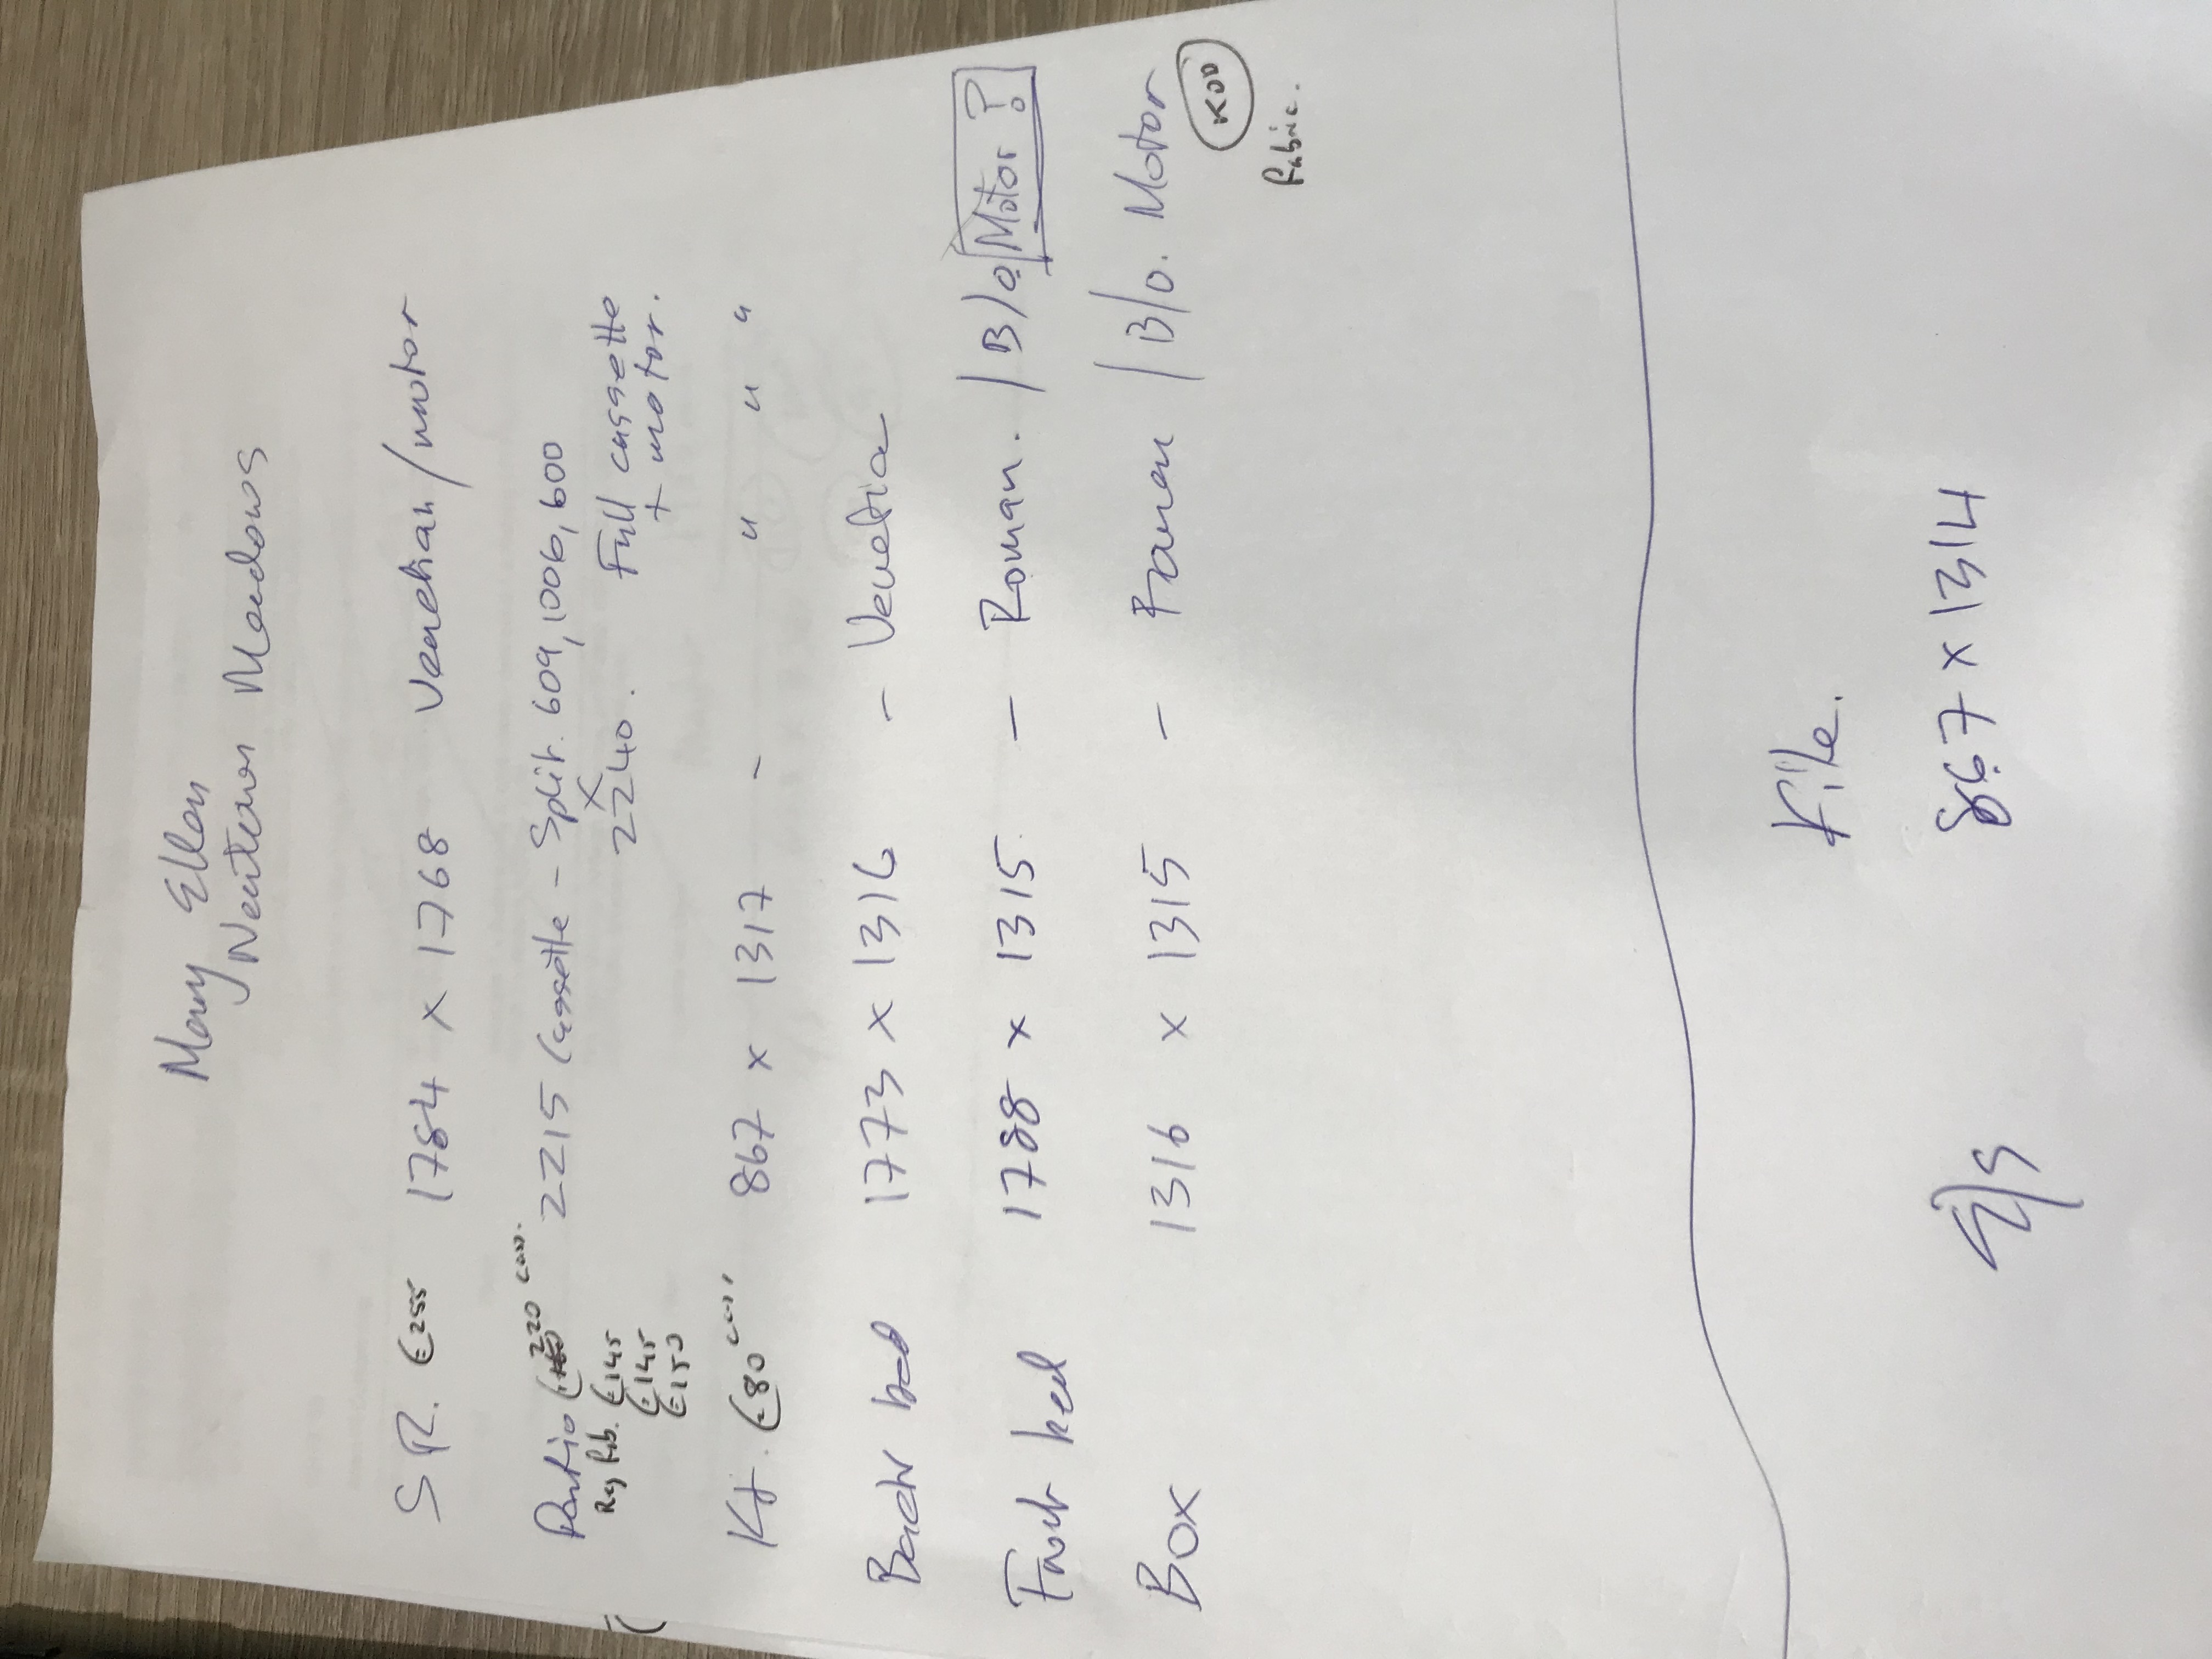 Mary Ellen
Newtown Meadows
S R. €255 1784 x 1768 Venetian/motor
Patio €220 cass. 2215 Cassette - Split. 609, 1006, 600
Reg Fab. €145 x 2240. Full cassette
€145 + motor.
€150
Kt. €80 cass. 867 x 1317 - " " "
Back bed 1773 x 1316 - Venetia
Front bed 1788 x 1315 - Roman. / B/o Motor ?
Box 1316 x 1315 - Roman / B/o. Motor
KOD
Fabric.
867 x 1314